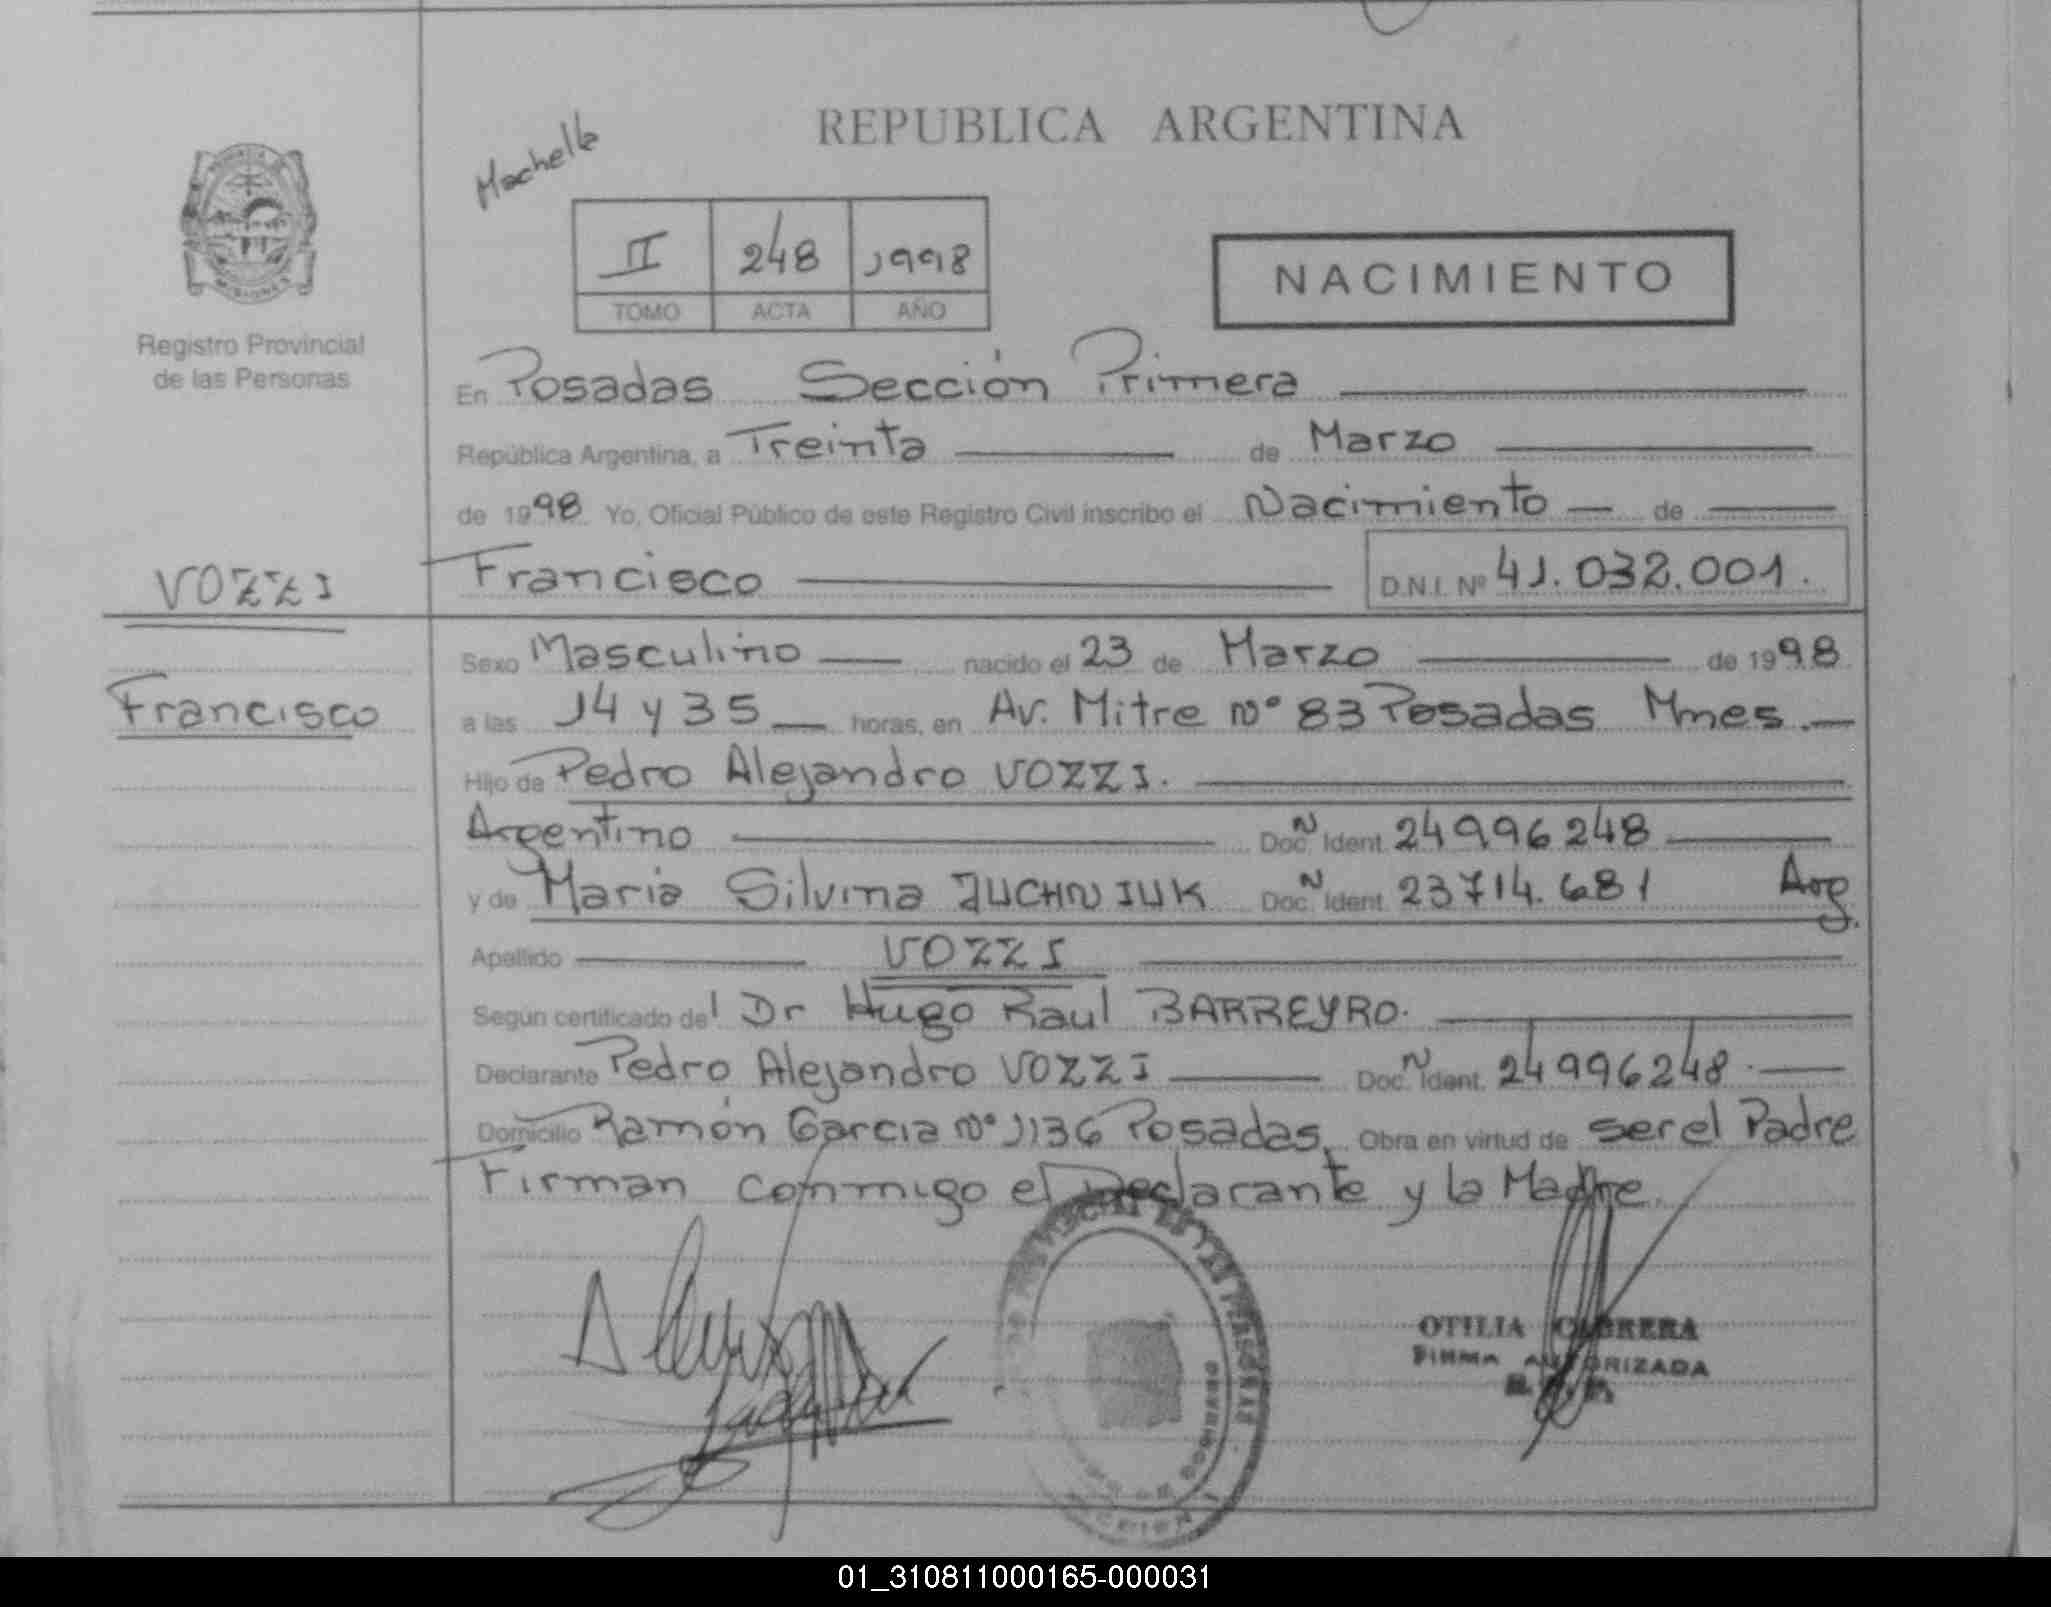 REPUBLICA ARGENTINA
II 248 1998
TOMO ACTA AÑO
NACIMIENTO
MISIONES
Registro Provincial
de las Personas
En Posadas Sección Primera
República Argentina, a Treinta de Marzo
de 1998 Yo, Oficial Público de este Registro Civil inscribo el Nacimiento de
VOZZI
Francisco
D.N.I. Nº 41.032.001.
Sexo Masculino nacido el 23 de Marzo de 1998
Francisco
a las 14 y 35 horas, en Av. Mitre Nº 83 Posadas Mnes.
Hijo de Pedro Alejandro VOZZI.
Argentino Doc. N Ident. 24996248
y de Maria Silvina JUCHNIUK Doc. N Ident. 23714.681 Arg.
Apellido VOZZI
Según certificado del Dr Hugo Raul BARREYRO.
Declarante Pedro Alejandro VOZZI Doc. N Ident. 24996248.
Domicilio Ramón Garcia Nº 1136 Posadas, Obra en virtud de ser el Padre
Firman conmigo el Declarante y la Madre.
OTILIA CABRERA
FIRMA AUTORIZADA
01_310811000165-000031